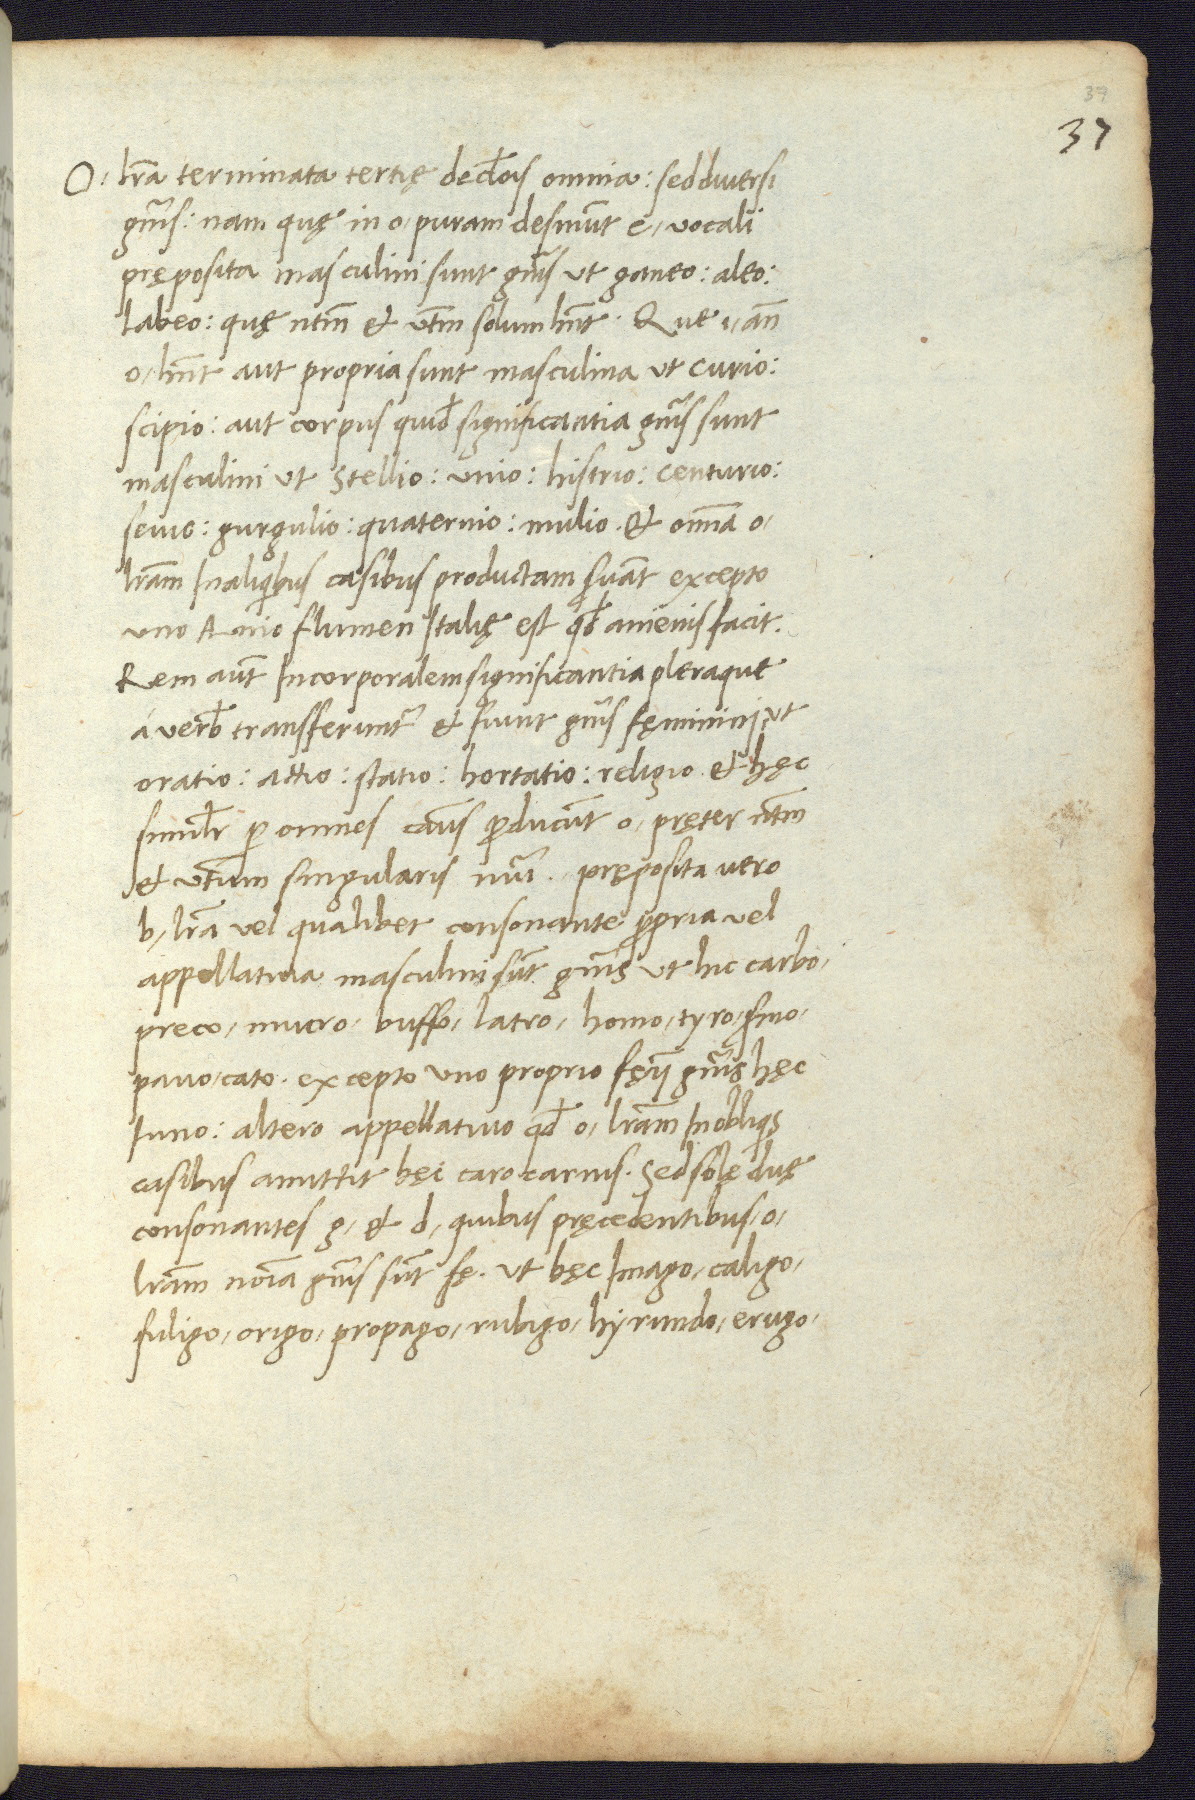 37
37
O. lr̃a terminata tertię decl̃ois omnia: sed diversi
gñis: nam quę in o, puram desinũt e, vocali
pręposita masculini sunt gñis ut ganeo: aleo:
labeo: quę ntm̃ & vtm̃ solum hñt. Que i, añ
o, hñt aut propria sunt masculina ut Curio:
scipio: aut corpus quid significantia gñis sunt
masculini ut stellio: unio: histrio: Centurio:
senio: gurgulio: quaternio: mulio. & omña o,
lr̃am In aliq̃bus casibus productam s̃uãt excepto
uno Anio flumen Italię est qd̃ anienis facit.
Rem aũt Incorporalem significantia pleraque
a verb̃ transferunt̃ & s̃unt gñis fęminini ut
oratio: attio: statio: hortatio: religio. & hęc
simil̃r p̱ omnes cãus p̃ducũt o, pręter ntm̃
& vtĩum singularis nũi. pręposita vero
b, lr̃a vel qualibet consonante p̃pria vel
appellativa masculini sũt gñis ut hic carbo,
preco, mucro, buffo, latro, homo, tyro, s̃mo,
pavo, cato. excepto uno proprio fęij gñis hęc
Iuno: altero appellativo qd̃ o, lr̃am In obliq̃s
casibus amittit hęc caro carnis. Sed solę duę
consonantes g, & d, quibus pręcedentibus, o,
lr̃am nõia gñis sũt fę. ut hęc Imago, caligo,
fuligo, origo, propago, rubigo, hyrundo, erugo,